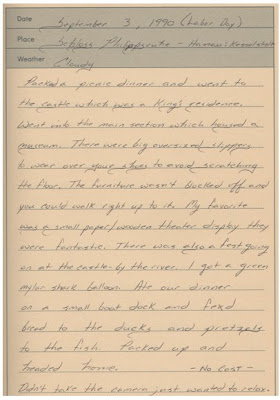 Date September 3, 1990 (Labor Day)
Place Schloss Philippsruhe - Hanau-Kesselstadt
Weather Cloudy
Packed a picnic dinner and went to
the castle which was a King's residence.
Went into the main section which housed a
museum. There were big oversized slippers
to wear over your shoes to avoid scratching
the floor. The furniture wasn't blocked off and
you could walk right up to it. My favorite
was a small paper/wooden theater display they
were fantastic. There was also a fest going
on at the castle-by the river. I got a green
mylar shark balloon. Ate our dinner
on a small boat dock and fexd
bread to the ducks and pretzels
to the fish. Packed up and
headed home. - No Cost -
Didn't take the camera just wanted to relax.